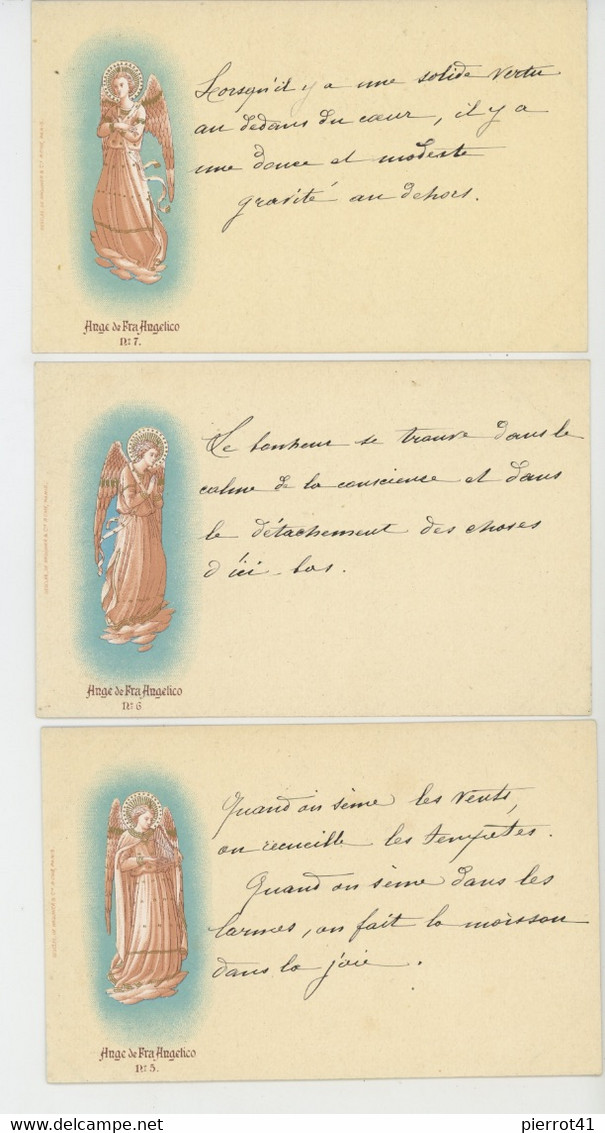 Lorsqu'il y a une solide vertu
au dedans du cœur, il y a
une douce et modeste
gravité au dehors.
Ange de Fra Angelico
Nº 7.
Le bonheur se trouve dans le
calme de la conscience et dans
le détachement des choses
d'ici-bas.
Ange de Fra Angelico
Nº 6
Quand on sème les vents,
on recueille les tempêtes.
Quand on sème dans les
larmes, on fait la moisson
dans la joie.
Ange de Fra Angelico
Nº 5.
pierrot41